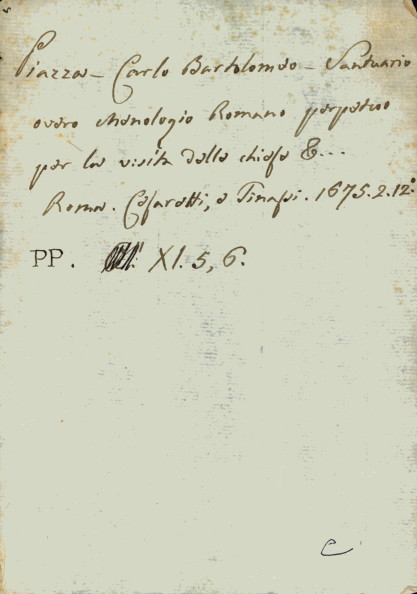 Piazza - Carlo Bartolomeo - Santuario
overo Menologio Romano perpetuo
per la visita delle chiese &...
Roma. Cesaretti, e Tinassi. 1675. 2. 12.°
PP. XI. 5, 6.
C